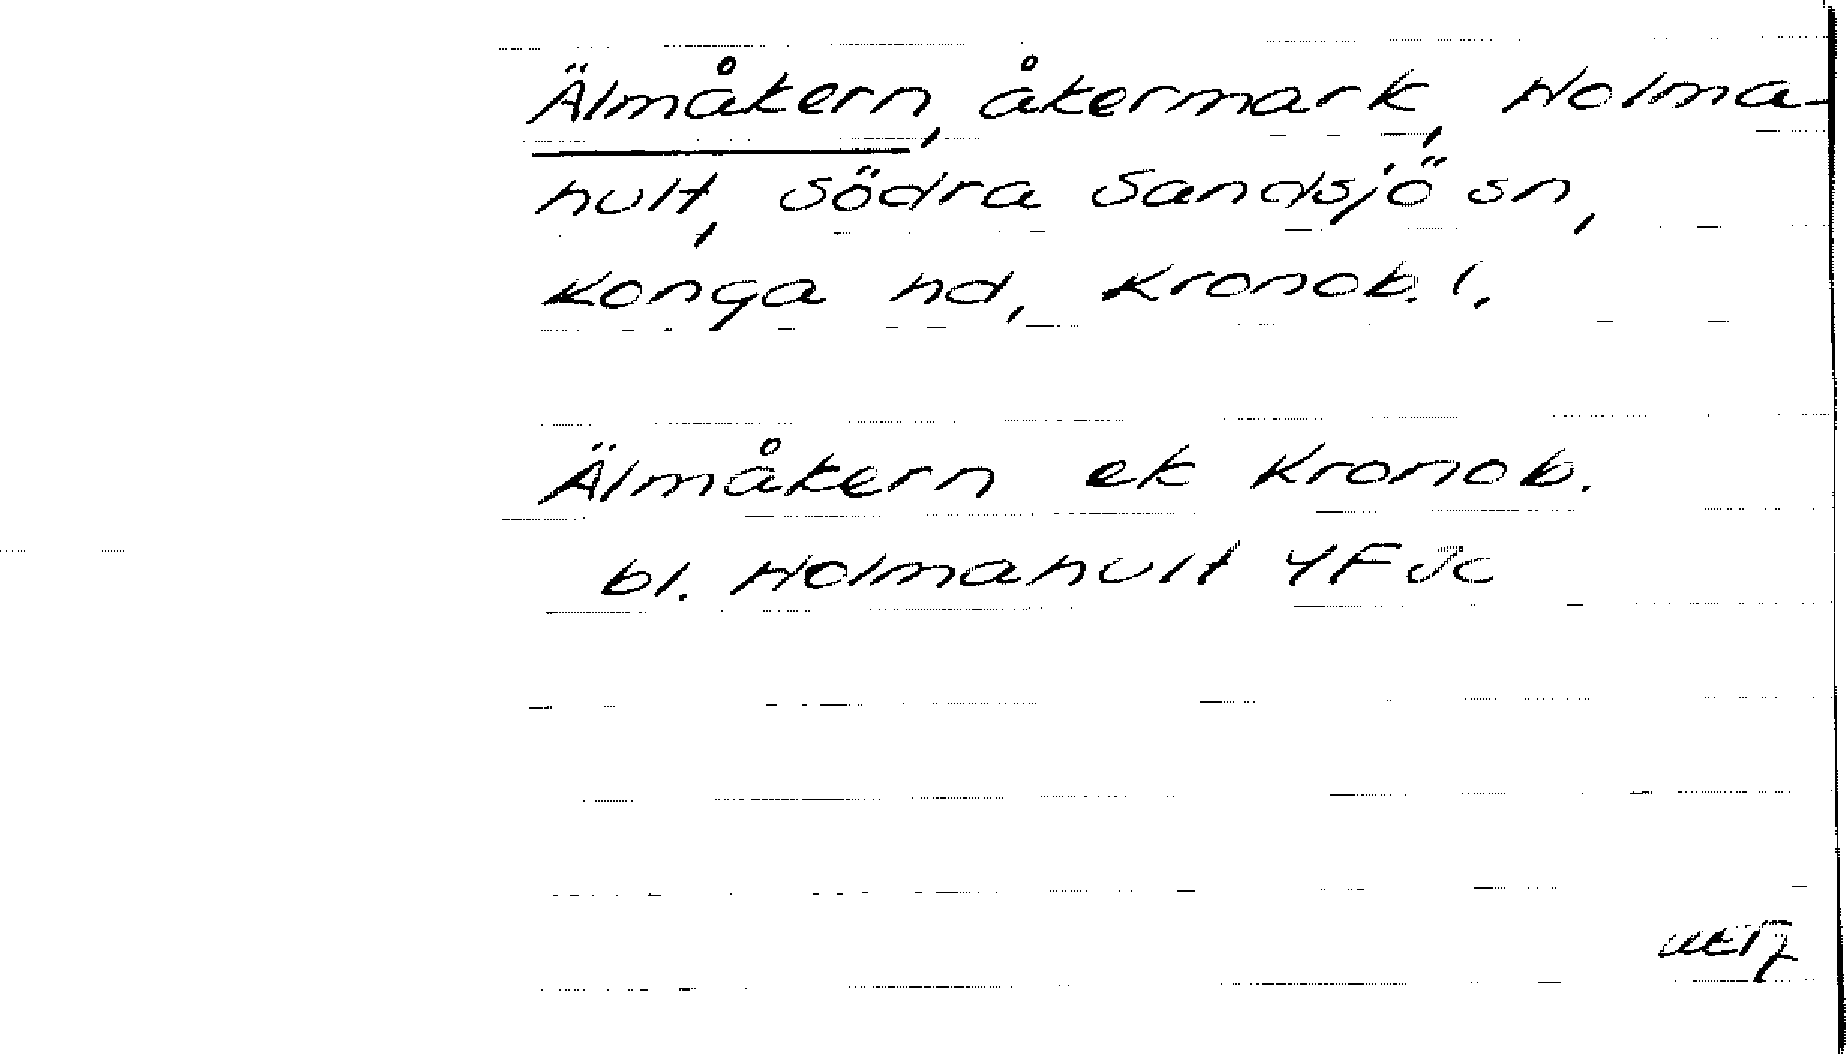 Älmåkern, åkermark, Holma-
hult, Södra Sandsjö sn,
Konga hd, Kronob. l.
Älmåkern ek Kronob.
bl. Holmahult 4F